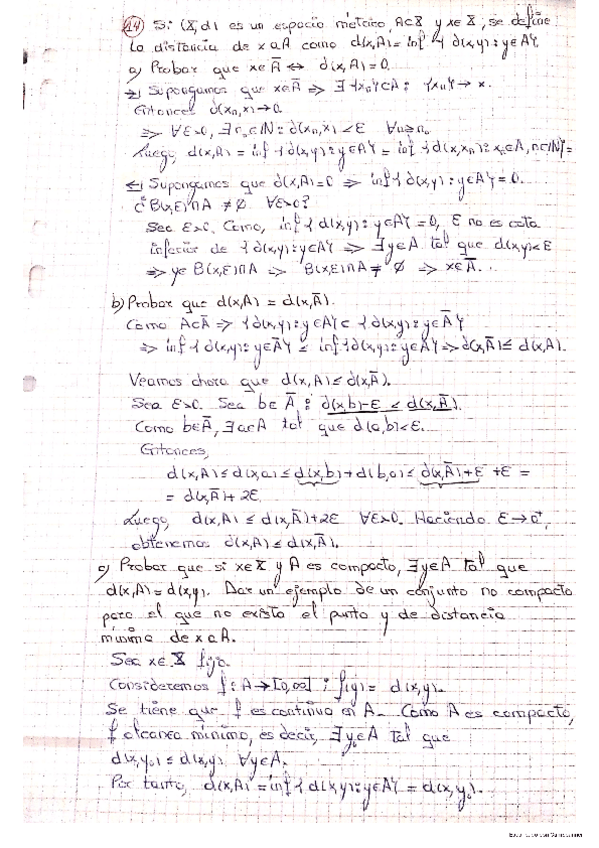 14) Si (X,d) es un espacio métrico A⊂X y x∈X, se define
la distancia de x a A como d(x,A) = inf{d(x,y): y∈A}.
a) Probar que x∈Ā ⇔ d(x,A)=0.
⇒) Supongamos que x∈Ā ⇒ ∃{xₙ}⊂A: {xₙ} → x.
Entonces d(xₙ,x)→0.
⇒ ∀ε>0, ∃n₀∈ℕ: d(xₙ,x)<ε ∀n≥n₀
Luego, d(x,A) = inf{d(x,y): y∈A} = inf{d(x,xₙ): xₙ∈A, n∈ℕ} =
⇐) Supongamos que d(x,A)=0 ⇒ inf{d(x,y): y∈A} = 0.
¿B(x,ε)∩A ≠ ∅ ∀ε>0?
Sea ε>0. Como, inf{d(x,y): y∈A}=0, ε no es cota
inferior de {d(x,y): y∈A} ⇒ ∃y∈A tal que d(x,y)<ε
⇒ y∈B(x,ε)∩A ⇒ B(x,ε)∩A ≠ ∅ ⇒ x∈Ā.
b) Probar que d(x,A) = d(x,Ā).
Como A⊂Ā ⇒ {d(x,y): y∈A} ⊂ {d(x,y): y∈Ā}
⇒ inf{d(x,y): y∈Ā} ≤ inf{d(x,y): y∈A} ⇒ d(x,Ā) ≤ d(x,A).
Veamos ahora que d(x,A) ≤ d(x,Ā).
Sea ε>0. Sea b∈Ā: d(x,b)-ε < d(x,Ā).
Como b∈Ā, ∃a∈A tal que d(a,b)<ε.
Entonces,
d(x,A) ≤ d(x,a) ≤ d(x,b)+d(b,a) ≤ d(x,Ā)+ε+ε =
= d(x,Ā)+2ε
Luego, d(x,A) ≤ d(x,Ā)+2ε ∀ε>0. Haciendo ε→0⁺,
obtenemos d(x,A) ≤ d(x,Ā).
c) Probar que si x∈X y A es compacto, ∃y∈A tal que
d(x,A) = d(x,y). Dar un ejemplo de un conjunto no compacto
para el que no exista el punto y de distancia
mínima de x a A.
Sea x∈X fijo.
Consideremos f: A→[0,∞] ; f(y) = d(x,y).
Se tiene que f es continua en A. Como A es compacto,
f alcanza mínimo, es decir, ∃y₀∈A tal que
d(x,y₀) ≤ d(x,y) ∀y∈A.
Por tanto, d(x,A) = inf{d(x,y): y∈A} = d(x,y₀).